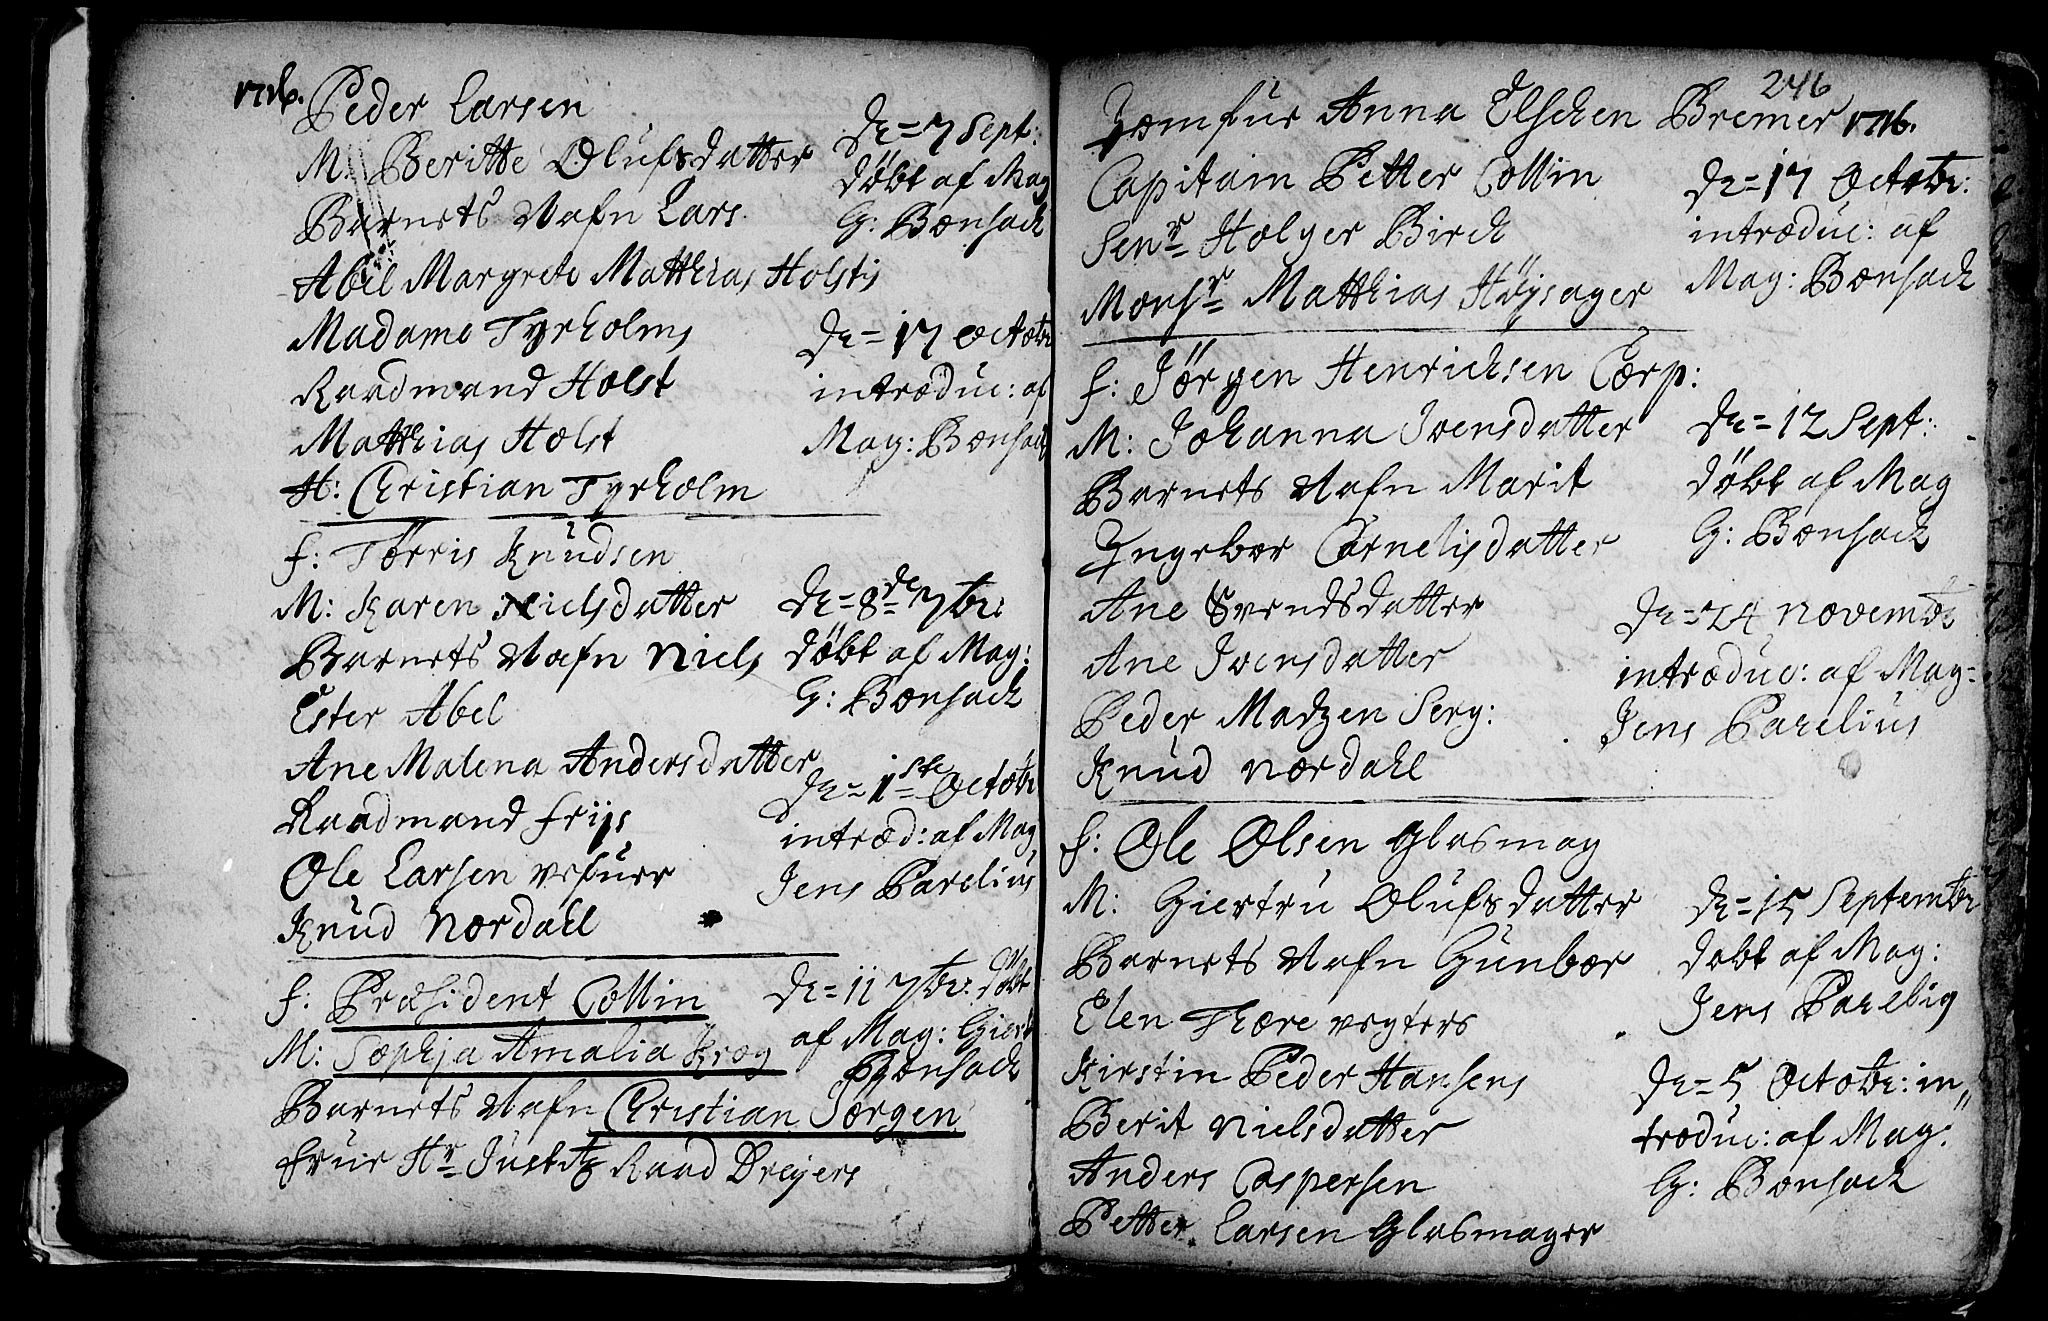 1716.
Peder Larsen
M: Beritte Olufsdatter
Barnets Nafn Lars.
Abel Margrete Matthias Holstis
Madame Tyrholms
Raadmand Holst
Matthias Holst
H: Christian Tyrholm
D= 7 Sept:
døbt af Mag
G: Bonsach
D= 17 Octobr
introduc: af
Mag: Bonsach
f: Torris Knudsen
M: Karen Nielsdatter
Barnets Nafn Niels
Ester Abel
Ane Malena Andersdatter
Raadmand friis
Ole Larsen
Knud Nordahl
D= 8de 7br:
døbt af Mag:
G: Bonsach
D= 1ste Octobr
introd: af Mag
Jens Parelius
f: Præsident Collin
M: Sophja Amalia Krog
Barnets Nafn Christian Jørgen
frue Hr Justitz Raad Dreyers
D= 11 7br: døbt
af Mag: Giert
Bonsach
246
Jomfur Anna Elschen Bremer 1716.
Capitain Petter Collin
Senr Holger Birch
Monsr Matthias Høysager
D= 17 Octobr:
introduc: af
Mag: Bonsach
f: Jørgen Henrichsen Corp:
M: Johanna Ivensdatter
Barnets Nafn Marit
Yngebor Cornelisdatter
Ane Svendsdatter
Ane Ivensdatter
Peder Madzen Serg:
Knud Nordahl
D= 12 Sept:
døbt af Mag
G: Bonsach
D= 24 Novembr
introduc: af Mag=
Jens Parelius
f: Ole Olsen Glasmag
M: Giertru Olufsdatter
Barnets Nafn Gunbor
Elen Thore vegters
Kirstin Peder Hansens
Berit Nielsdatter
Anders Caspersen
Petter Larsen Glasmager
D= 15 Septembr
døbt af Mag:
Jens Parelius
D= 5 Octobr: in„
troduc: af Mag:
G: Bonsach